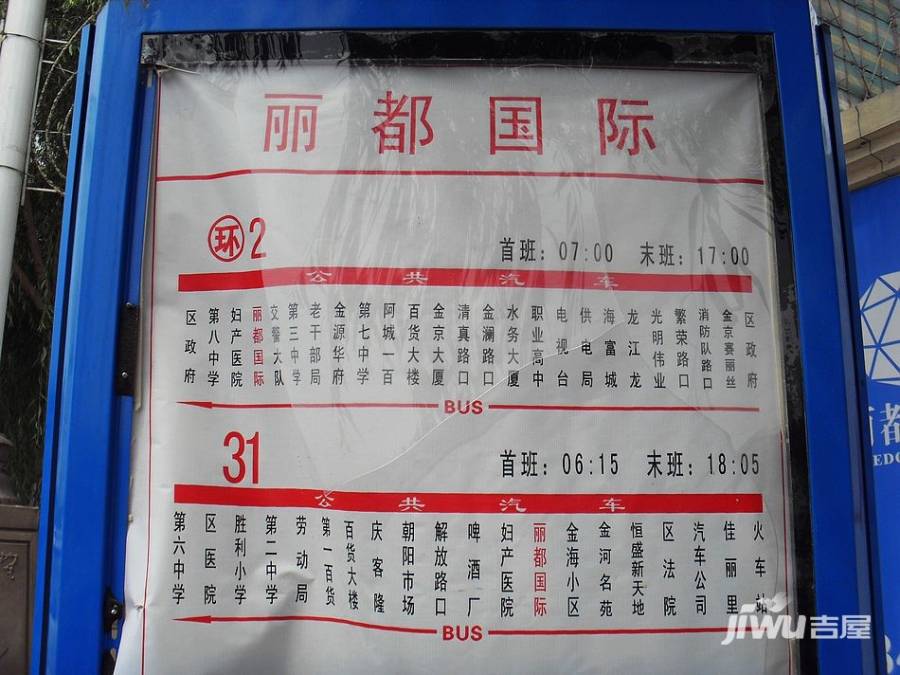 丽都国际
环2
首班：07:00 末班：17:00
公共汽车
区政府
第八中学
妇产医院
丽都国际
交警大队
第三中学
老干部局
金源华府
第七中学
阿城一百
百货大楼
金京大厦
清真路口
金澜路口
水务大厦
职业高中
电视台
供电局
海富城
龙江龙
光明伟业
繁荣路口
消防队路口
金京赛丽丝
区政府
BUS
31
首班：06:15 末班：18:05
公共汽车
第六中学
区医院
胜利小学
第二中学
劳动局
第一百货
百货大楼
庆客隆
朝阳市场
解放路口
啤酒厂
妇产医院
丽都国际
金海小区
金河名苑
恒盛新天地
区法院
汽车公司
佳丽里
火车站
BUS
jiwu吉屋
都